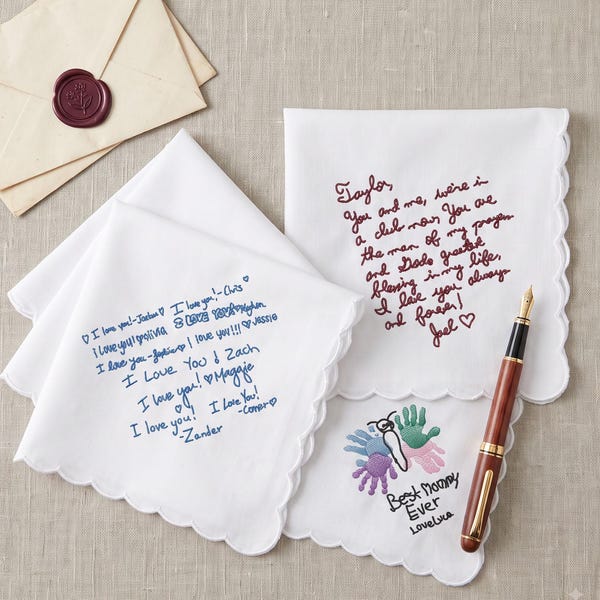 Taylor,
You and me, we're in
a club now. You are
the man of my prayers
and Gods greatest
blessing in my life,
I love you always
and forever!
Joel ♡
♡ I love you! -Jackson I love you! - Chris ♡
i love you! ♡ olivia I LOVE YOU
I love you - ♡ I love you!!! ♡ Jessie
I Love You! Zach
I love you! ♡ Maggie
I love you! I Love You!
-Zander -Conner ♡
Best Mommy
Ever
Love Luca